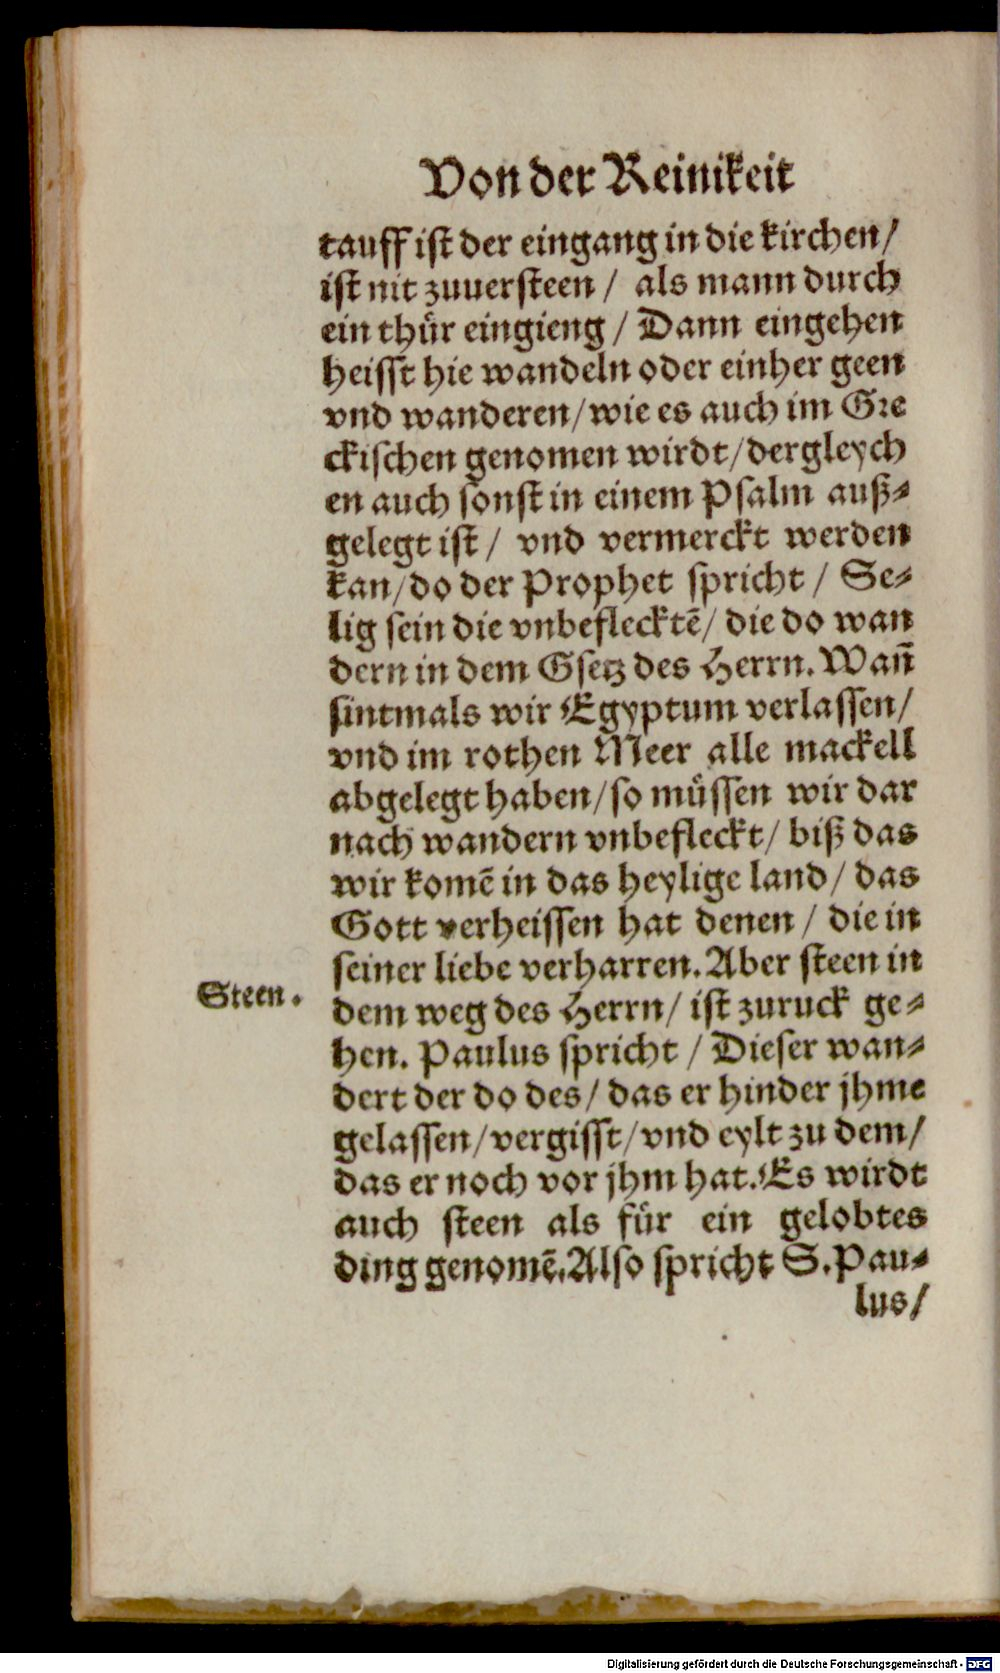 Von der Reinikeit
tauff ist der eingang in die kirchen/
ist nit zuuersteen / als mann durch
ein thür eingieng / Dann eingehen
heisst hie wandeln oder einher geen
vnd wanderen/wie es auch im Gre
ckischen genomen wirdt/dergleych
en auch sonst in einem Psalm auß⸗
gelegt ist / vnd vermerckt werden
kan/do der Prophet spricht / Se⸗
lig sein die vnbeflecktē/ die do wan
dern in dem Gsetz des Herrn. Wañ
sintmals wir Egyptum verlassen/
vnd im rothen Meer alle mackell
abgelegt haben/so müssen wir dar
nach wandern vnbefleckt/ biß das
wir komē in das heylige land/ das
Gott verheissen hat denen / die in
seiner liebe verharren. Aber steen in
Steen.
dem weg des Herrn/ ist zuruck ge⸗
hen. Paulus spricht / Dieser wan⸗
dert der do des/ das er hinder jhme
gelassen/vergisst/vnd eylt zu dem/
das er noch vor jhm hat. Es wirdt
auch steen als für ein gelobtes
ding genomē. Also spricht S. Pau⸗
lus/
Digitalisierung gefördert durch die Deutsche Forschungsgemeinschaft - DFG